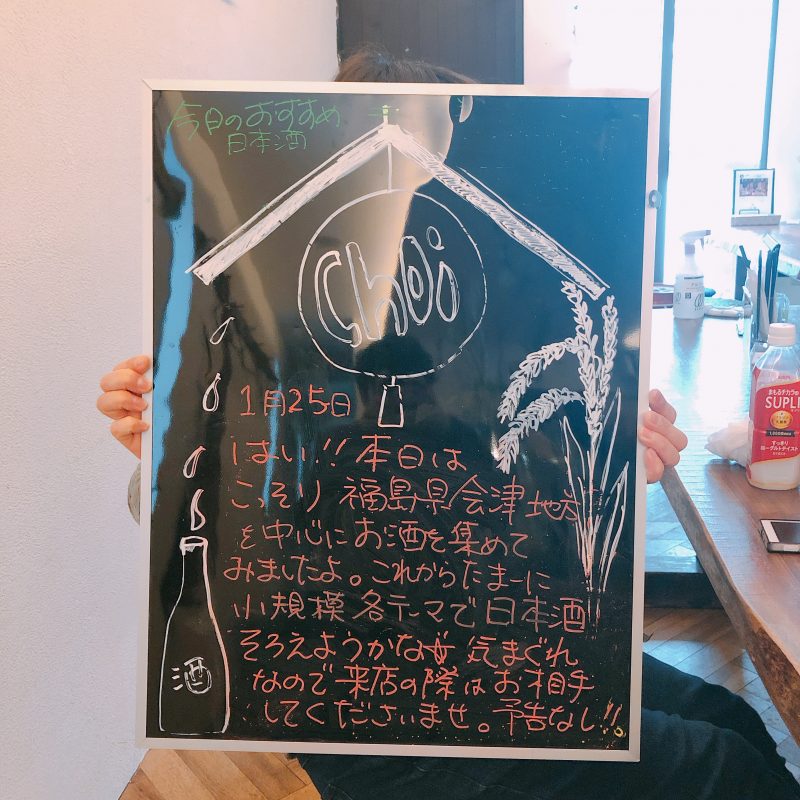 今日のおすすめ
日本酒
choi
1月25日
はい!!本日は
こっそり 福島県会津地方
を中心にお酒を集めて
みましたよ。これからたまーに
小規模各テーマで日本酒
そろえようかな 気まぐれ
なので来店の際はお相手
してくださいませ。予告なし!!
酒
まもるチカラの
SUPLI